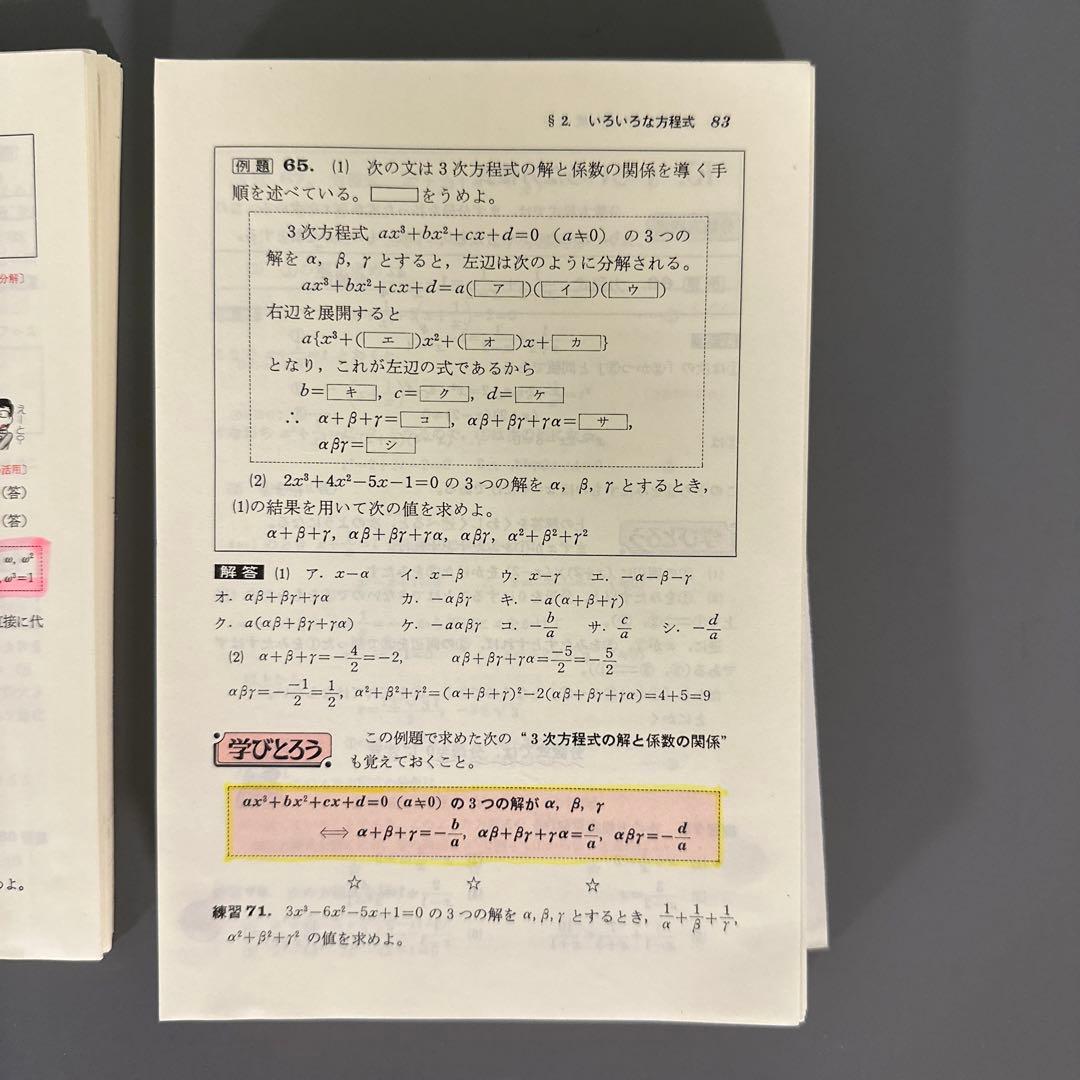 分解]
えーと?
の活用]
(答)
(答)
ω, ω²
, ω³=1
直接に代
よ。
§2. いろいろな方程式 83
例題 65. (1) 次の文は3次方程式の解と係数の関係を導く手
順を述べている。□をうめよ。
3次方程式 ax³+bx²+cx+d=0 (a≒0) の3つの
解を α, β, γ とすると,左辺は次のように分解される。
ax³+bx²+cx+d=a(ア)(イ)(ウ)
右辺を展開すると
a{x³+(エ)x²+(オ)x+カ}
となり,これが左辺の式であるから
b=キ, c=ク, d=ケ
∴ α+β+γ=コ, αβ+βγ+γα=サ,
αβγ=シ
(2) 2x³+4x²−5x−1=0 の3つの解を α, β, γ とするとき,
(1)の結果を用いて次の値を求めよ。
α+β+γ, αβ+βγ+γα, αβγ, α²+β²+γ²
解答 (1) ア. x−α イ. x−β ウ. x−γ エ. −α−β−γ
オ. αβ+βγ+γα カ. −αβγ キ. −a(α+β+γ)
ク. a(αβ+βγ+γα) ケ. −aαβγ コ. −b/a サ. c/a シ. −d/a
(2) α+β+γ=−4/2=−2, αβ+βγ+γα=−5/2=−5/2
αβγ=−−1/2=1/2, α²+β²+γ²=(α+β+γ)²−2(αβ+βγ+γα)=4+5=9
学びとろう この例題で求めた次の“3次方程式の解と係数の関係”
も覚えておくこと。
ax³+bx²+cx+d=0 (a≒0) の3つの解が α, β, γ
⟺ α+β+γ=−b/a, αβ+βγ+γα=c/a, αβγ=−d/a
☆ ☆ ☆
練習71. 3x³−6x²−5x+1=0 の3つの解を α, β, γ とするとき, 1/α+1/β+1/γ,
α²+β²+γ² の値を求めよ。